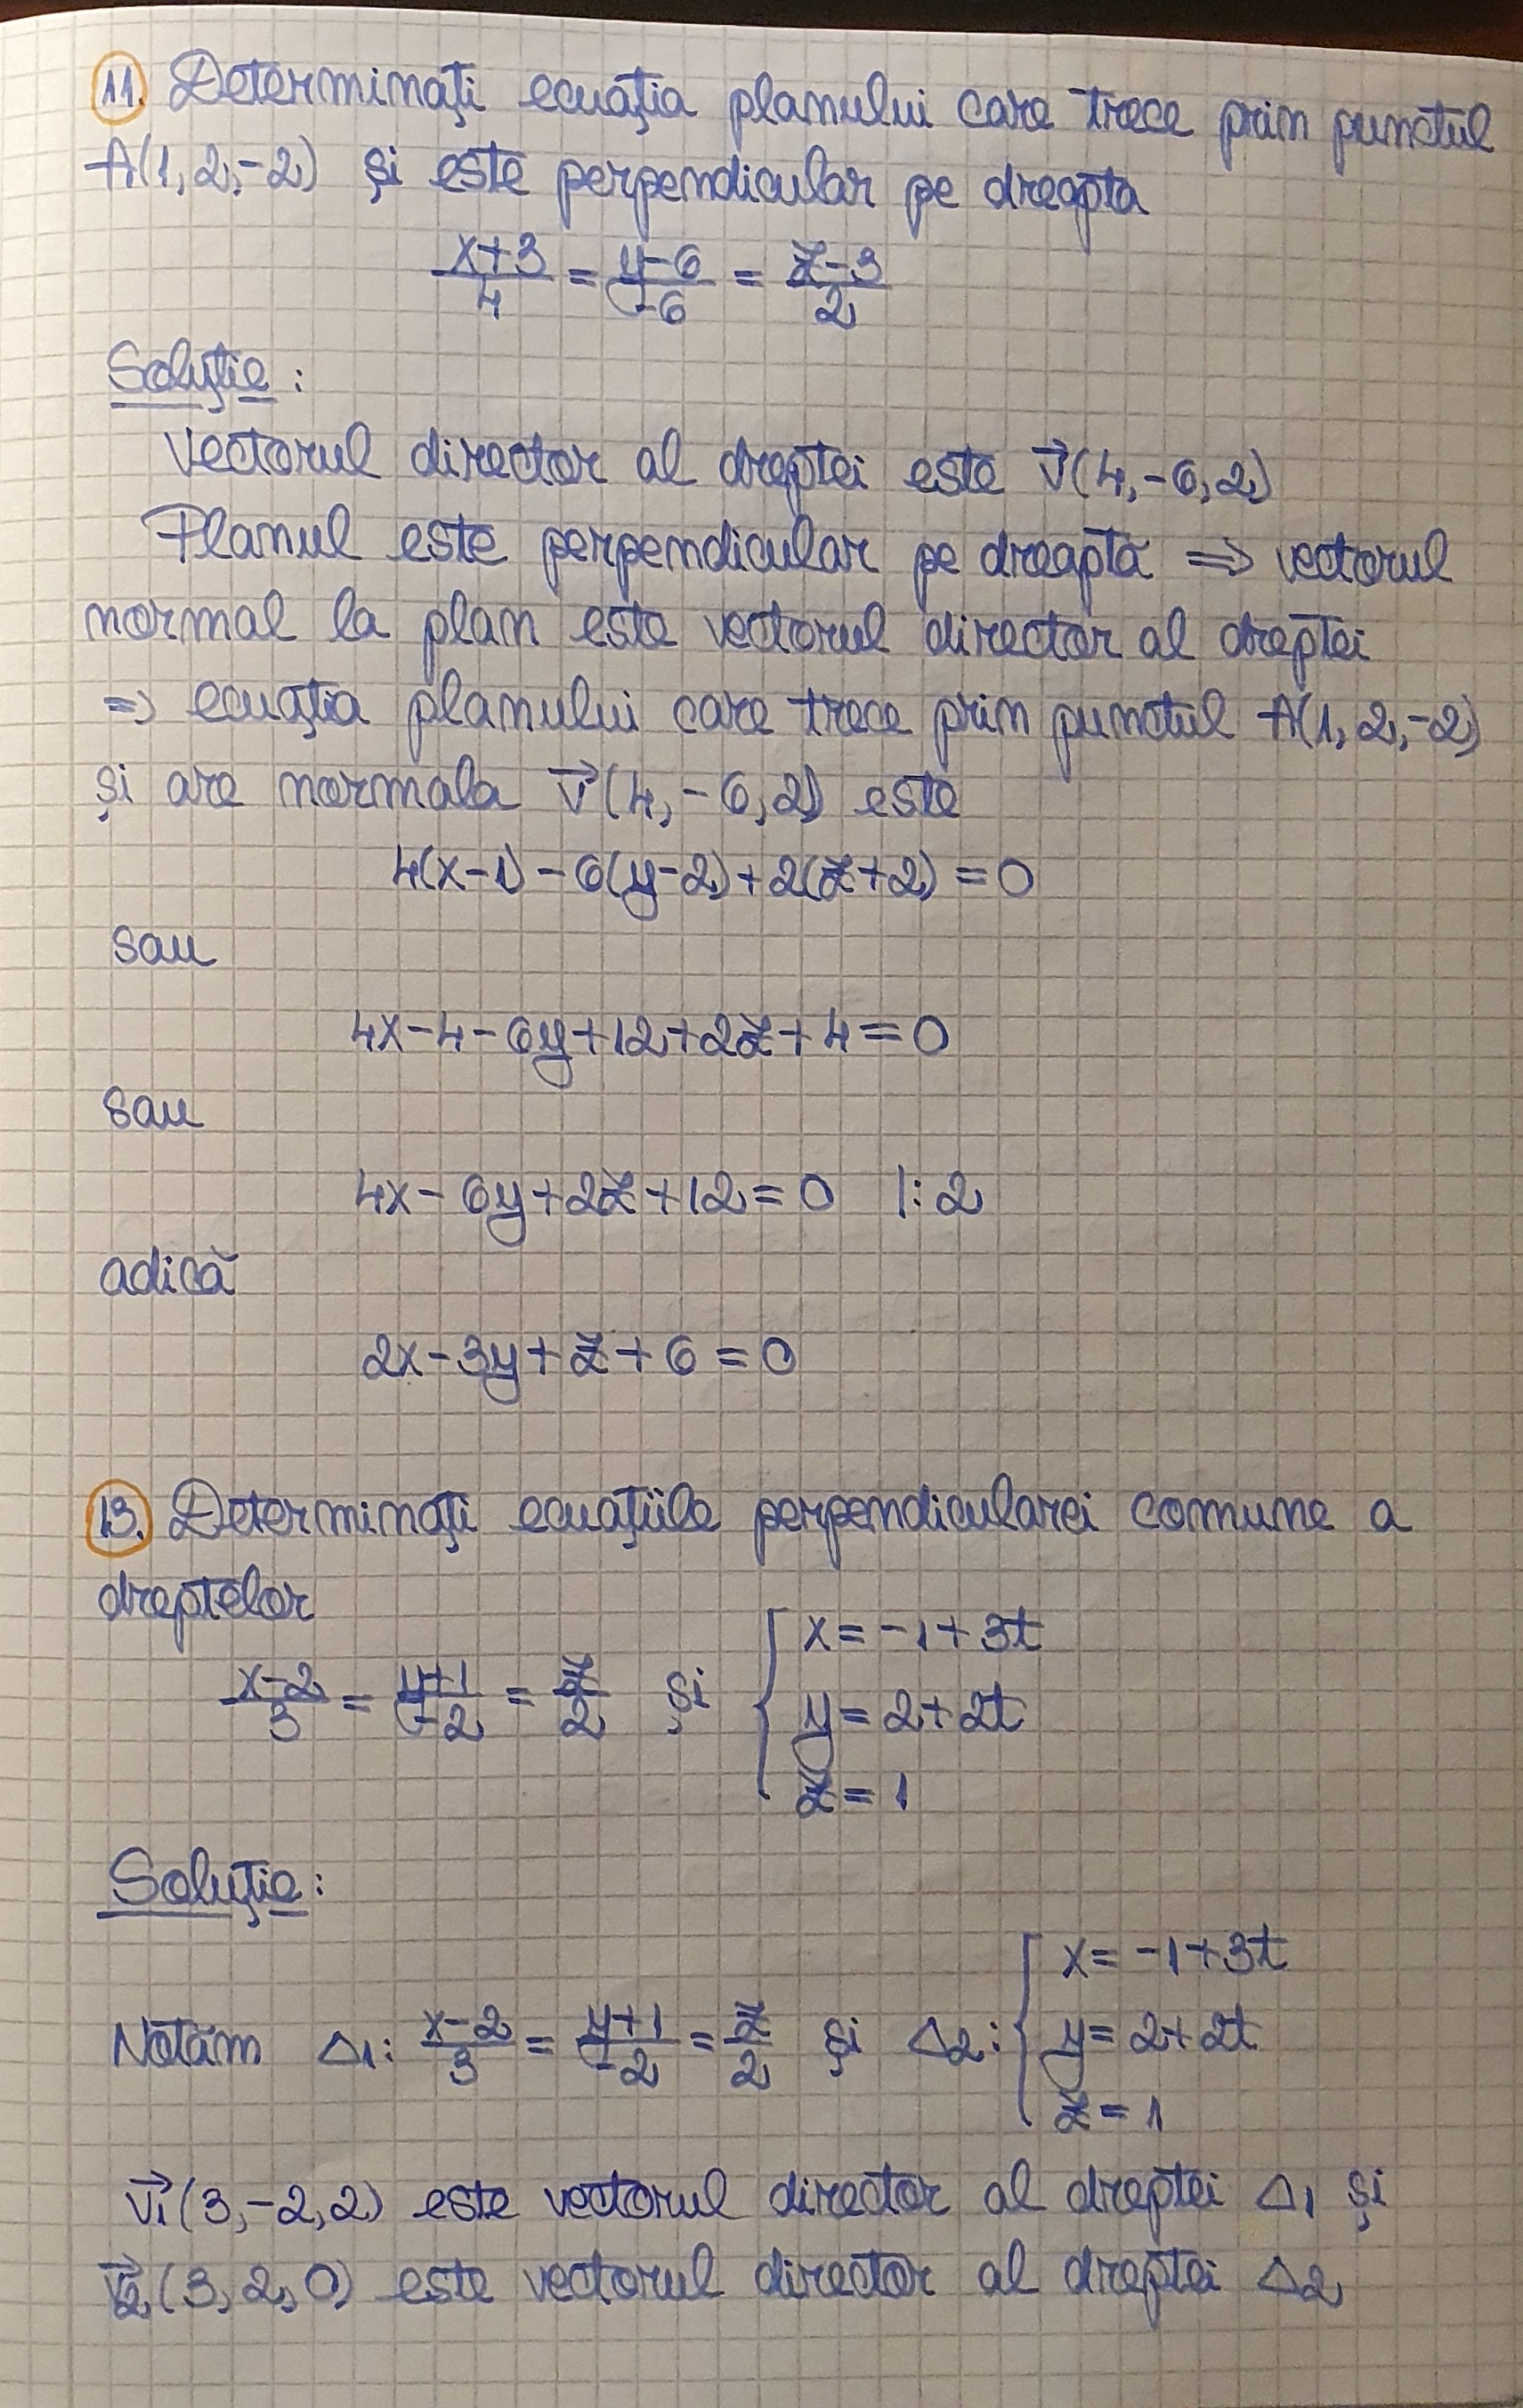 11. Determinați ecuația planului care trece prin punctul
A(1, 2, -2) și este perpendicular pe dreapta
(x+3)/4 = (y-6)/-6 = (z-3)/2
Soluție:
Vectorul director al dreptei este v⃗(4, -6, 2)
Planul este perpendicular pe dreaptă ⇒ vectorul
normal la plan este vectorul director al dreptei
⇒ ecuația planului care trece prin punctul A(1, 2, -2)
și are normala v⃗(4, -6, 2) este
4(x-1) - 6(y-2) + 2(z+2) = 0
sau
4x - 4 - 6y + 12 + 2z + 4 = 0
sau
4x - 6y + 2z + 12 = 0 |: 2
adică
2x - 3y + z + 6 = 0
13. Determinați ecuațiile perpendicularei comune a
dreptelor
(x-2)/3 = (y+1)/-2 = z/2 și { x = -1 + 3t
y = 2 + 2t
z = 1
Soluție:
Notăm Δ1: (x-2)/3 = (y+1)/-2 = z/2 și Δ2: { x = -1 + 3t
y = 2 + 2t
z = 1
v⃗1(3, -2, 2) este vectorul director al dreptei Δ1 și
v⃗2(3, 2, 0) este vectorul director al dreptei Δ2